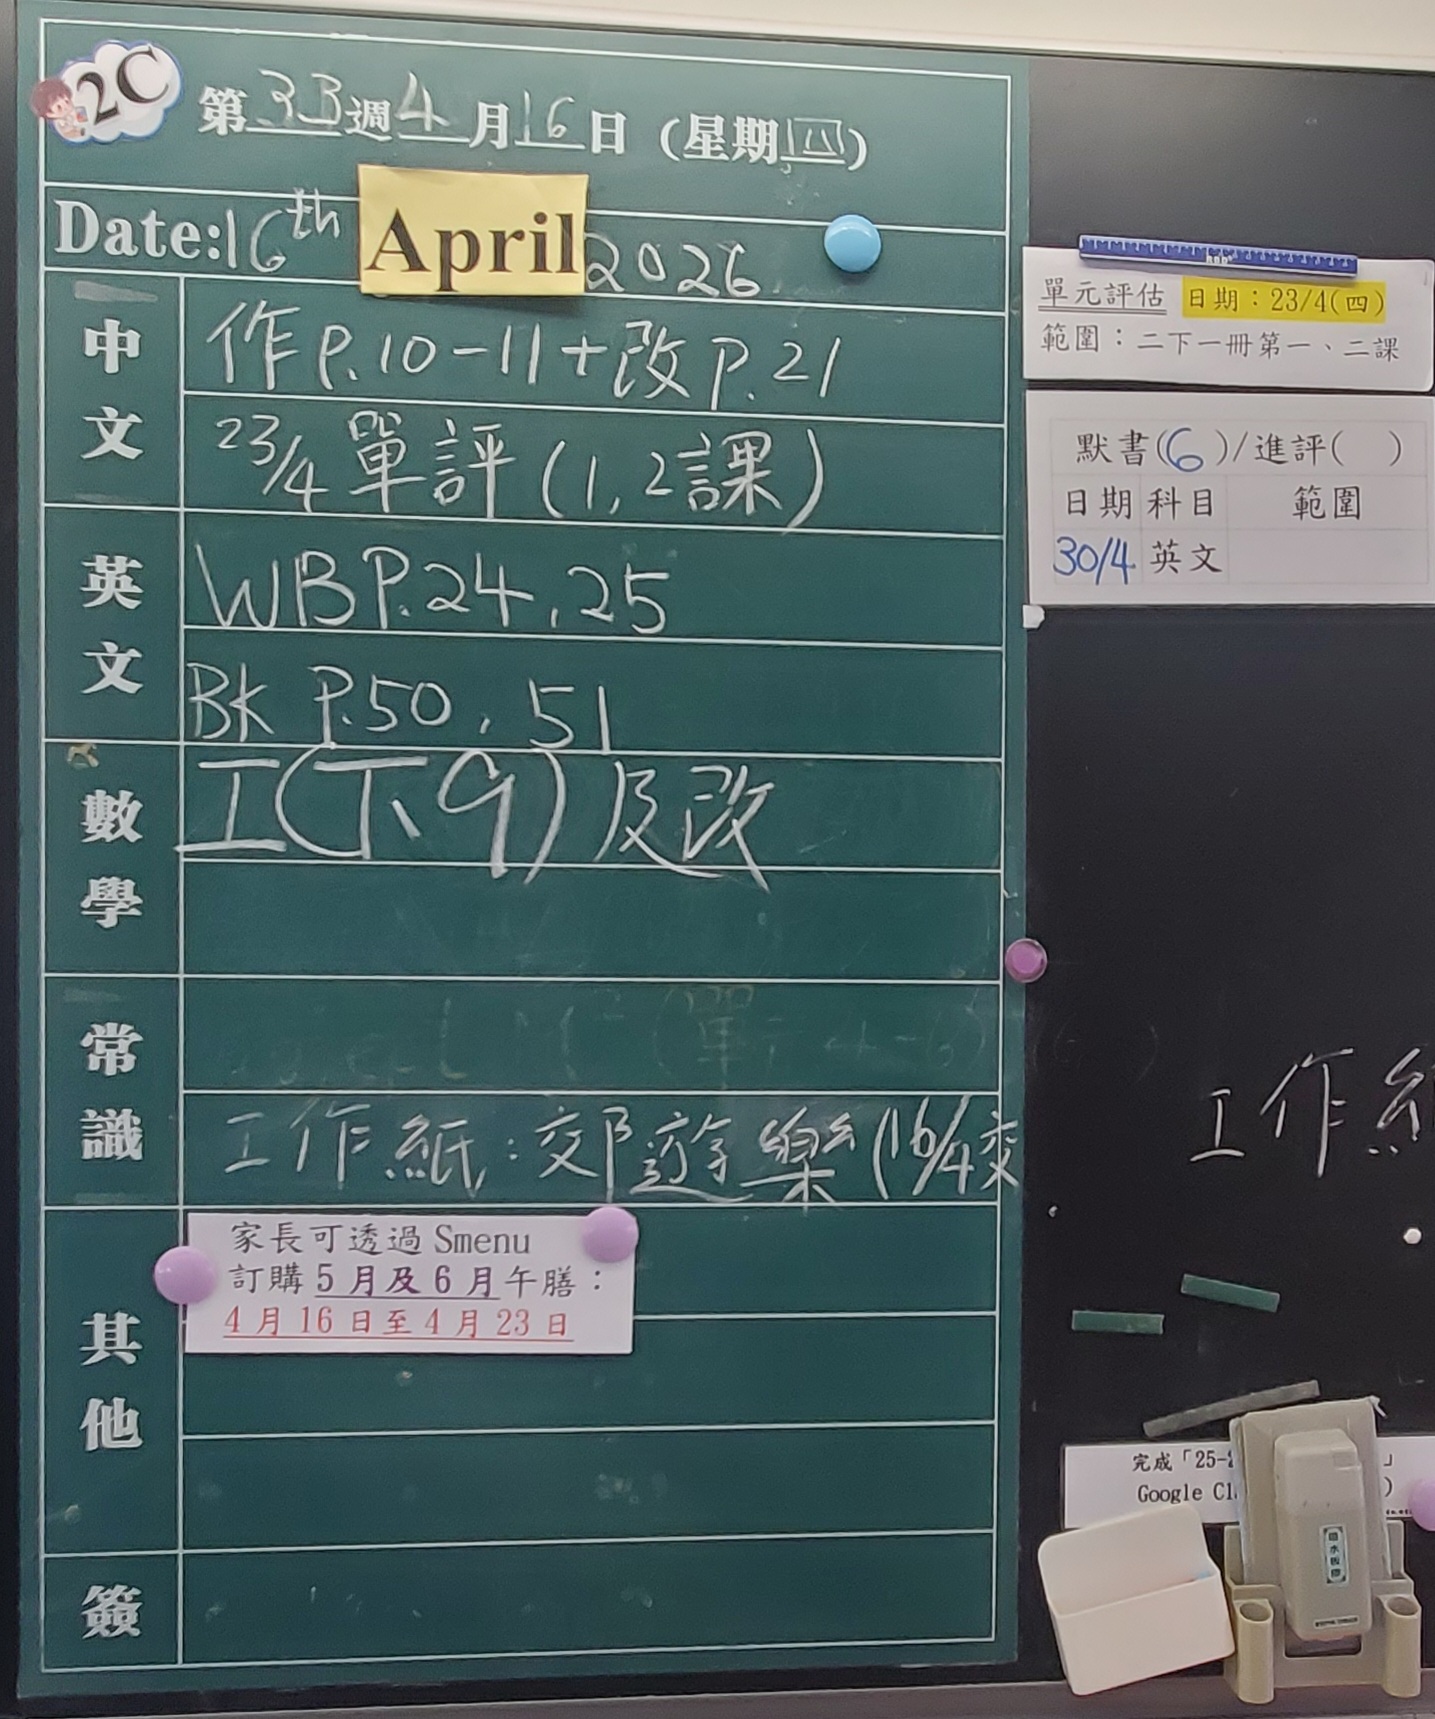 2C
第33週4月16日(星期四)
Date:16th April 2026
中文
作P.10-11+改P.21
23/4單評(1,2課)
英文
WB P.24,25
BK P.50,51
數學
工(下9)及改
常識
工作紙:郊遊樂(16/4交
其他
家長可透過 Smenu
訂購5月及6月午膳:
4月16日至4月23日
簽
單元評估 日期:23/4(四)
範圍:二下一冊第一、二課
默書(6)/進評( )
日期 科目 範圍
30/4 英文
工作
完成「25-
Google Cl